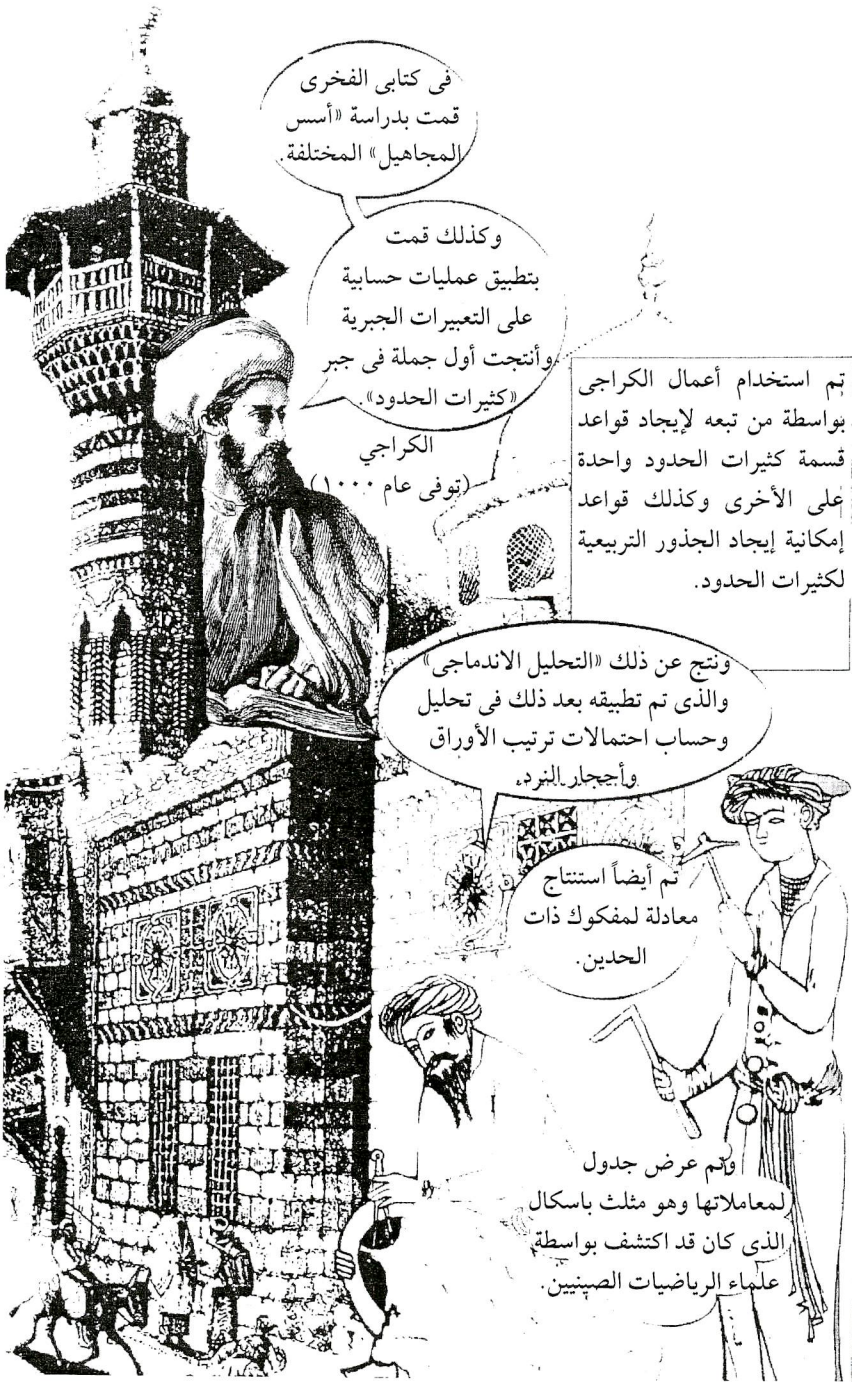 فى كتابى الفخرى
قمت بدراسة «أسس
المجاهيل» المختلفة.
وكذلك قمت
بتطبيق عمليات حسابية
على التعبيرات الجبرية
وأنتجت أول جملة فى جبر
«كثيرات الحدود».
الكراجي
(توفى عام ١٠٠٠)
تم استخدام أعمال الكراجى
بواسطة من تبعه لإيجاد قواعد
قسمة كثيرات الحدود واحدة
على الأخرى وكذلك قواعد
إمكانية إيجاد الجذور التربيعية
لكثيرات الحدود.
ونتج عن ذلك «التحليل الاندماجى»
والذى تم تطبيقه بعد ذلك فى تحليل
وحساب احتمالات ترتيب الأوراق
وأحجار النرد.
تم أيضاً استنتاج
معادلة لمفكوك ذات
الحدين.
وتم عرض جدول
لمعاملاتها وهو مثلث باسكال
الذى كان قد اكتشف بواسطة
علماء الرياضيات الصينيين.